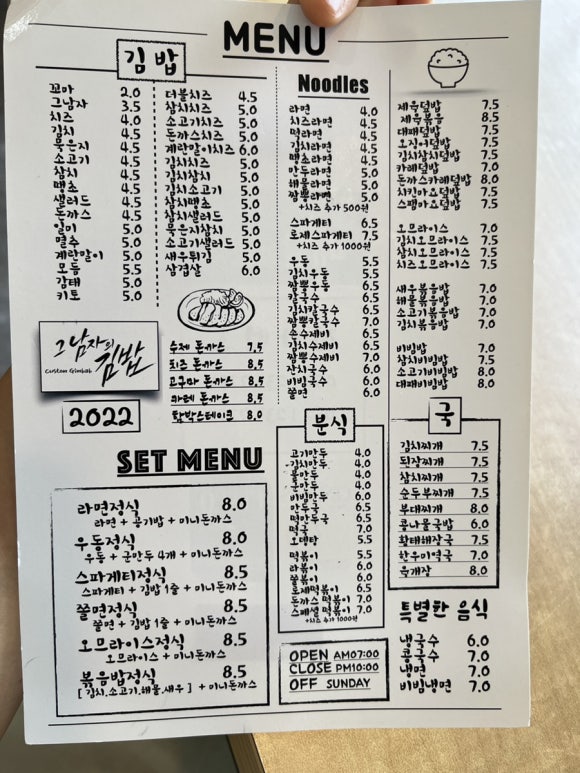 MENU
김밥
꼬마 2.0
그남자 3.5
치즈 4.0
김치 4.5
묵은지 4.5
소고기 4.5
참치 4.5
땡초 4.5
샐러드 4.5
돈까스 4.5
일미 5.0
멸추 5.0
계란말이 5.0
모듬 5.5
감태 5.0
키토 5.0
더블치즈 4.5
참치치즈 5.0
소고기치즈 5.0
돈까스치즈 5.0
계란말이치즈 6.0
김치치즈 5.0
김치참치 5.0
김치소고기 5.0
참치땡초 5.0
참치샐러드 5.0
묵은지참치 5.0
소고기샐러드 5.0
새우튀김 5.0
삼겹살 6.0
그남자의 김밥
Custom Gimbab
2022
수제 돈까스 7.5
치즈 돈까스 8.5
고구마 돈까스 8.5
카레 돈까스 8.5
함박스테이크 8.0
Noodles
라면 4.0
치즈라면 4.5
떡라면 4.5
김치라면 4.5
땡초라면 4.5
만두라면 5.0
해물라면 5.0
짬뽕라면 5.0
+치즈 추가 500원
스파게티 6.5
로제스파게티 7.5
+치즈 추가 1000원
우동 5.5
김치우동 5.5
짬뽕우동 6.5
칼국수 6.5
김치칼국수 6.5
짬뽕칼국수 7.0
손수제비 6.5
김치수제비 6.5
짬뽕수제비 7.0
잔치국수 6.0
비빔국수 6.0
쫄면 6.0
분식
고기만두 4.0
김치만두 4.0
물만두 4.0
군만두 4.0
비빔만두 6.0
만두국 6.5
떡만두국 6.5
떡국 7.0
오뎅탕 5.5
떡볶이 5.5
라볶이 6.0
쫄볶이 6.0
로제떡볶이 6.5
돈까스 떡볶이 7.0
스페셜 떡볶이 7.0
+치즈 추가 1000원
OPEN AM07:00
CLOSE PM10:00
OFF SUNDAY
제육덮밥 7.5
제육볶음 8.5
대패덮밥 7.5
오징어덮밥 7.5
김치참치덮밥 7.5
카레덮밥 7.0
돈까스카레덮밥 8.0
치킨마요덮밥 7.5
스팸마요덮밥 7.5
오므라이스 7.0
김치오므라이스 7.5
참치오므라이스 7.5
치즈오므라이스 7.5
새우볶음밥 7.0
해물볶음밥 7.0
소고기볶음밥 7.0
김치볶음밥 7.0
비빔밥 7.0
참치비빔밥 7.5
소고기비빔밥 8.0
대패비빔밥 8.0
국
김치찌개 7.5
된장찌개 7.5
참치찌개 7.5
순두부찌개 7.5
부대찌개 8.0
콩나물국밥 6.0
황태해장국 7.5
한우미역국 7.5
육개장 8.0
특별한 음식
냉국수 6.0
콩국수 7.0
냉면 7.0
비빔냉면 7.0
SET MENU
라면정식 8.0
라면 + 공기밥 + 미니돈까스
우동정식 8.0
우동 + 군만두 4개 + 미니돈까스
스파게티정식 8.5
스파게티 + 김밥 1줄 + 미니돈까스
쫄면정식 8.5
쫄면 + 김밥 1줄 + 미니돈까스
오므라이스정식 8.5
오므라이스 + 미니돈까스
볶음밥정식 8.5
[ 김치.소고기.해물.새우 ] + 미니돈까스